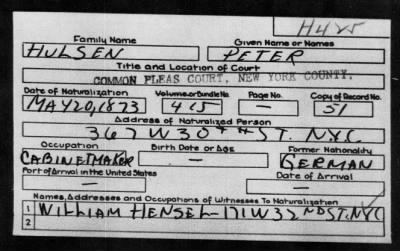 H425
Family Name Given Name or Names
HULSEN PETER
Title and Location of Court
COMMON PLEAS COURT, NEW YORK COUNTY.
Date of Naturalization Volume or Bundle No. Page No. Copy of Record No.
MAY 20, 1873 415 — 51
Address of Naturalized Person
367 W 30TH ST. NYC.
Occupation Birth Date or Age Former Nationality
CABINETMAKER — GERMAN
Port of Arrival in the United States Date of Arrival
— —
Names, Addresses and Occupations of Witnesses To Naturalization
1 WILLIAM HENSEL - 171 W 32ND ST. NYC
2